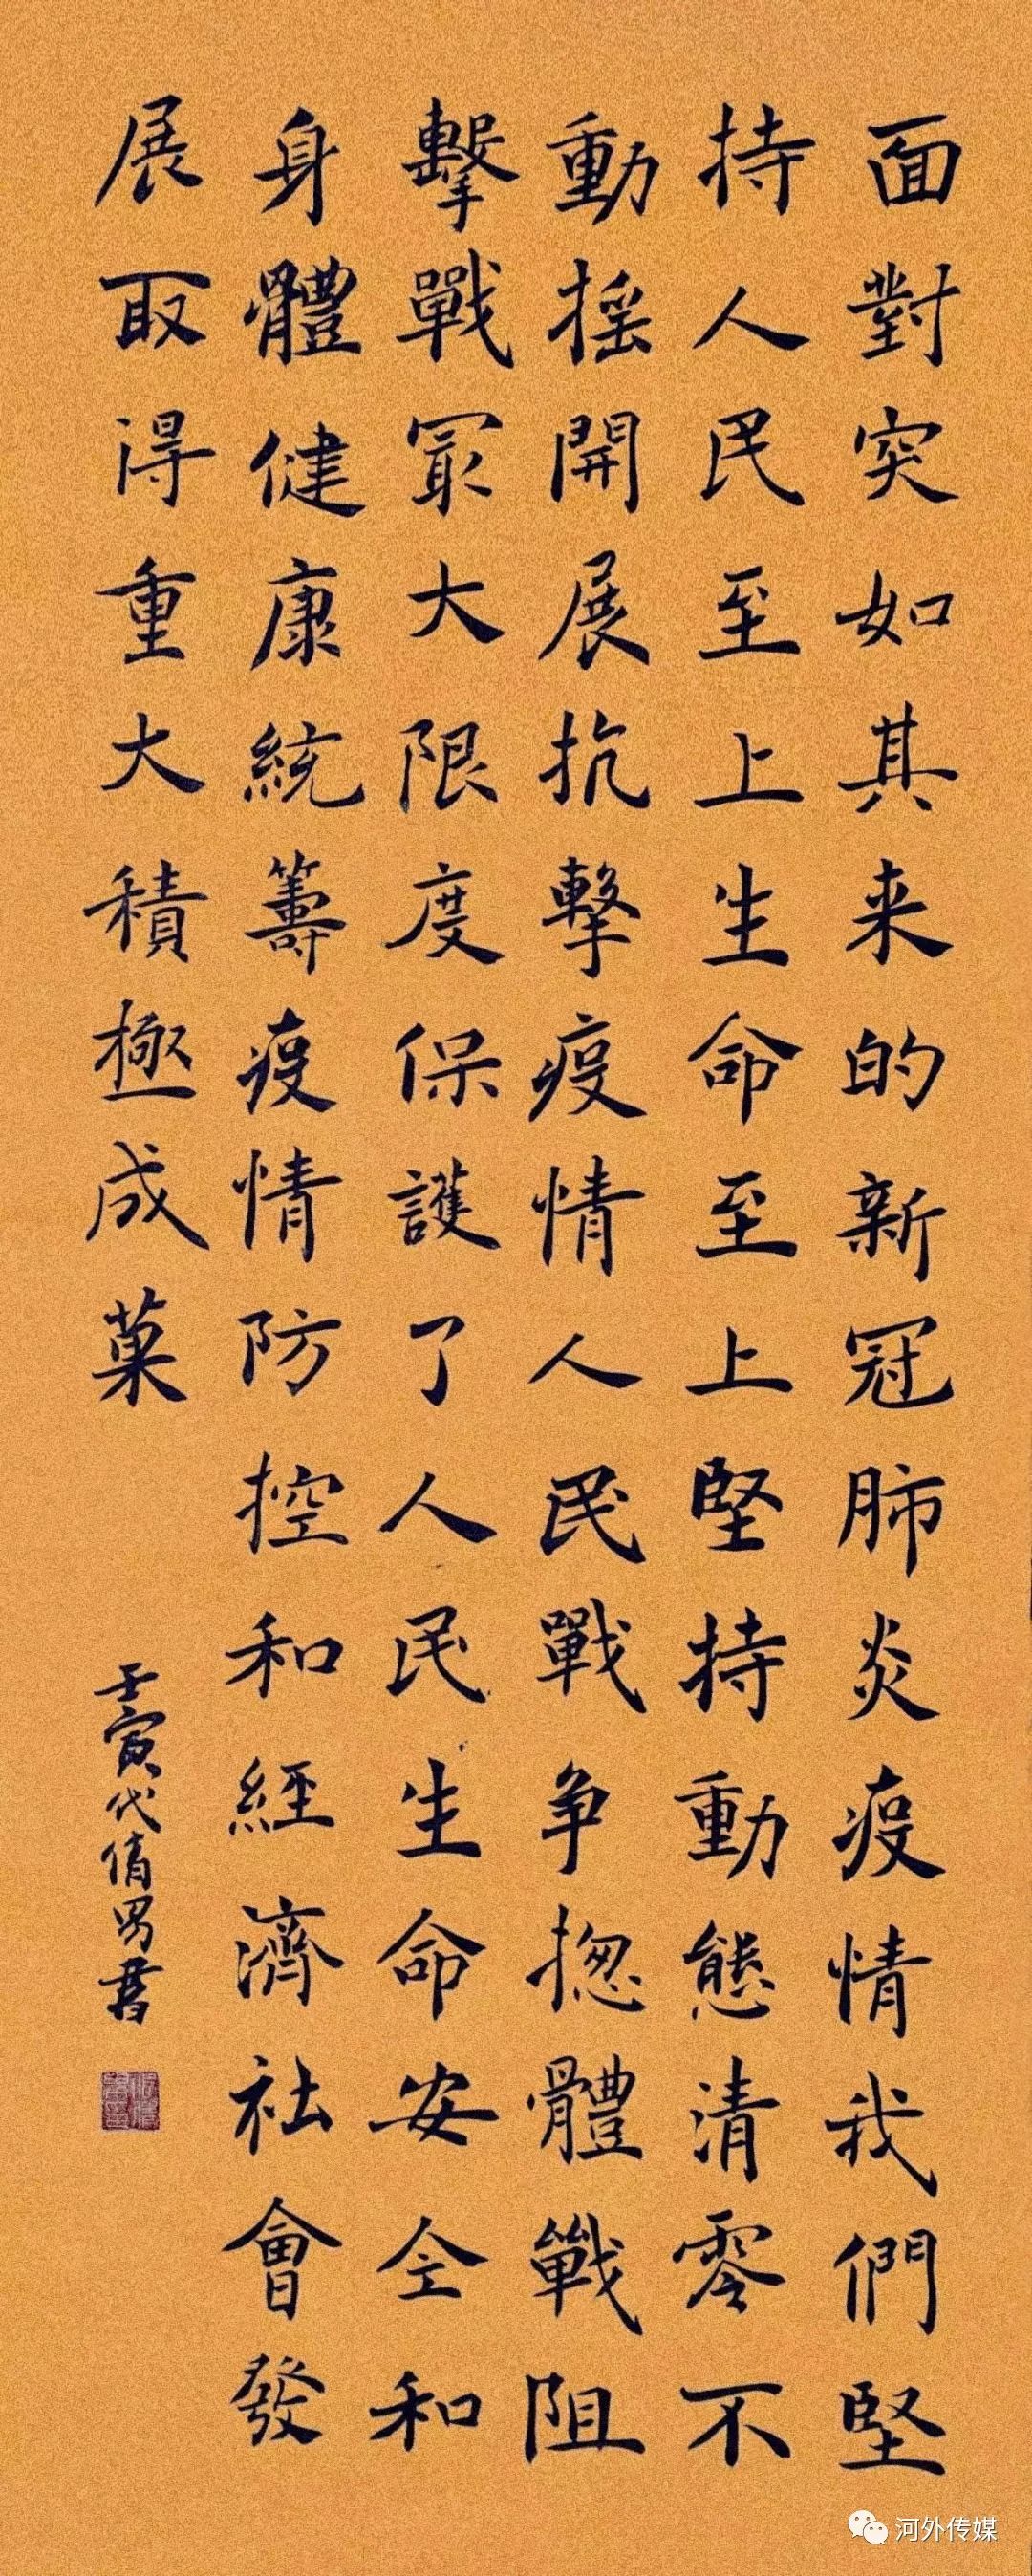 面對突如其来的新冠肺炎疫情我們堅
持人民至上生命至上堅持動態清零不
動摇開展抗擊疫情人民戰争揔體戰阻
擊戰冣大限度保護了人民生命安全和
身體健康統籌疫情防控和經濟社會發
展取得重大積極成菓
壬寅代倩男書
河外传媒